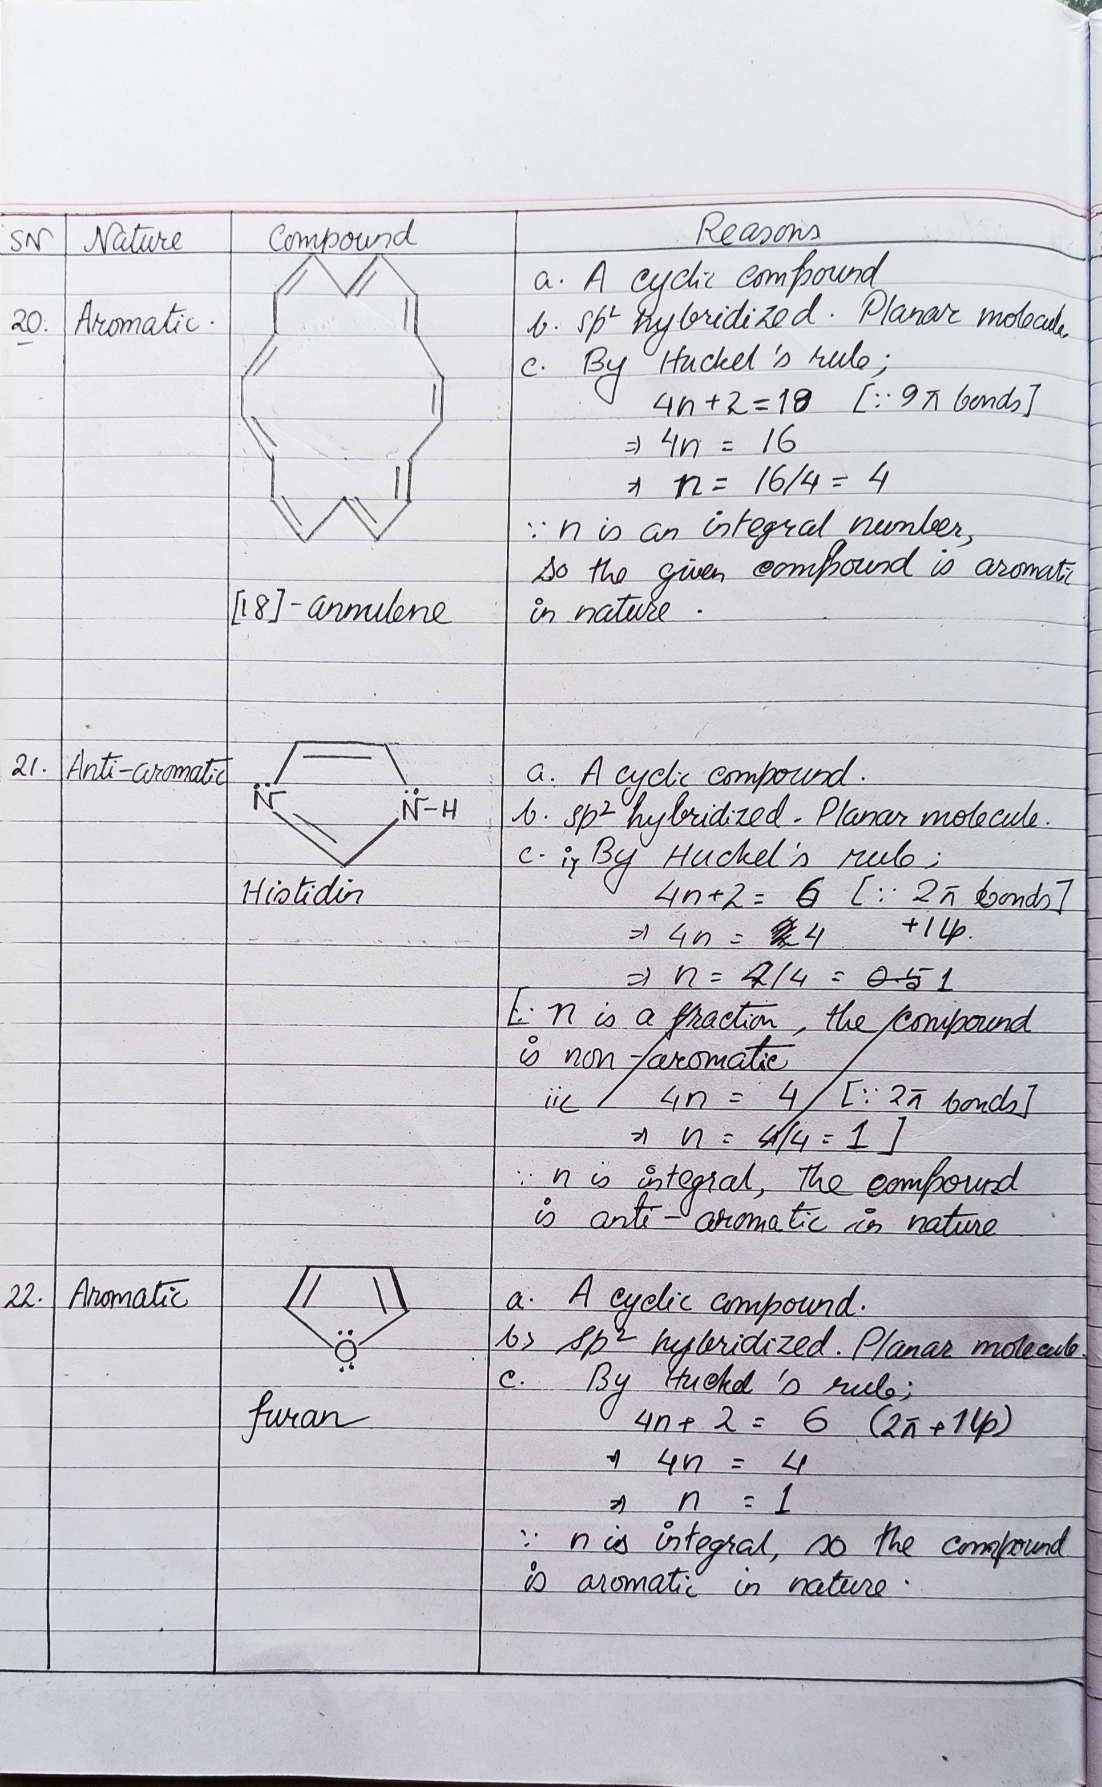 SN Nature Compound Reasons
20. Aromatic.
a. A cyclic compound
b. sp² hybridized. Planar molecule.
c. By Huckel's rule;
4n+2=18 [∵ 9π bonds]
⇒ 4n = 16
⇒ n = 16/4 = 4
∵ n is an integral number,
so the given compound is aromatic
in nature.
[18]-annulene
21. Anti-aromatic
N N-H
Histidin
a. A cyclic compound.
b. sp² hybridized. Planar molecule.
c. i, By Huckel's rule;
4n+2 = 6 [∵ 2π bonds]
+1lp.
⇒ 4n = 4
⇒ n = 4/4 = 0.5 1
[∵ n is a fraction, the compound
is non-aromatic
ii 4n = 4 [∵ 2π bonds]
⇒ n = 4/4 = 1 ]
∵ n is integral, the compound
is anti-aromatic in nature
22. Aromatic
O
furan
a. A cyclic compound.
b> sp² hybridized. Planar molecule.
c. By Huckel's rule;
4n+2 = 6 (2π+1lp)
⇒ 4n = 4
⇒ n = 1
∵ n is integral, so the compound
is aromatic in nature.